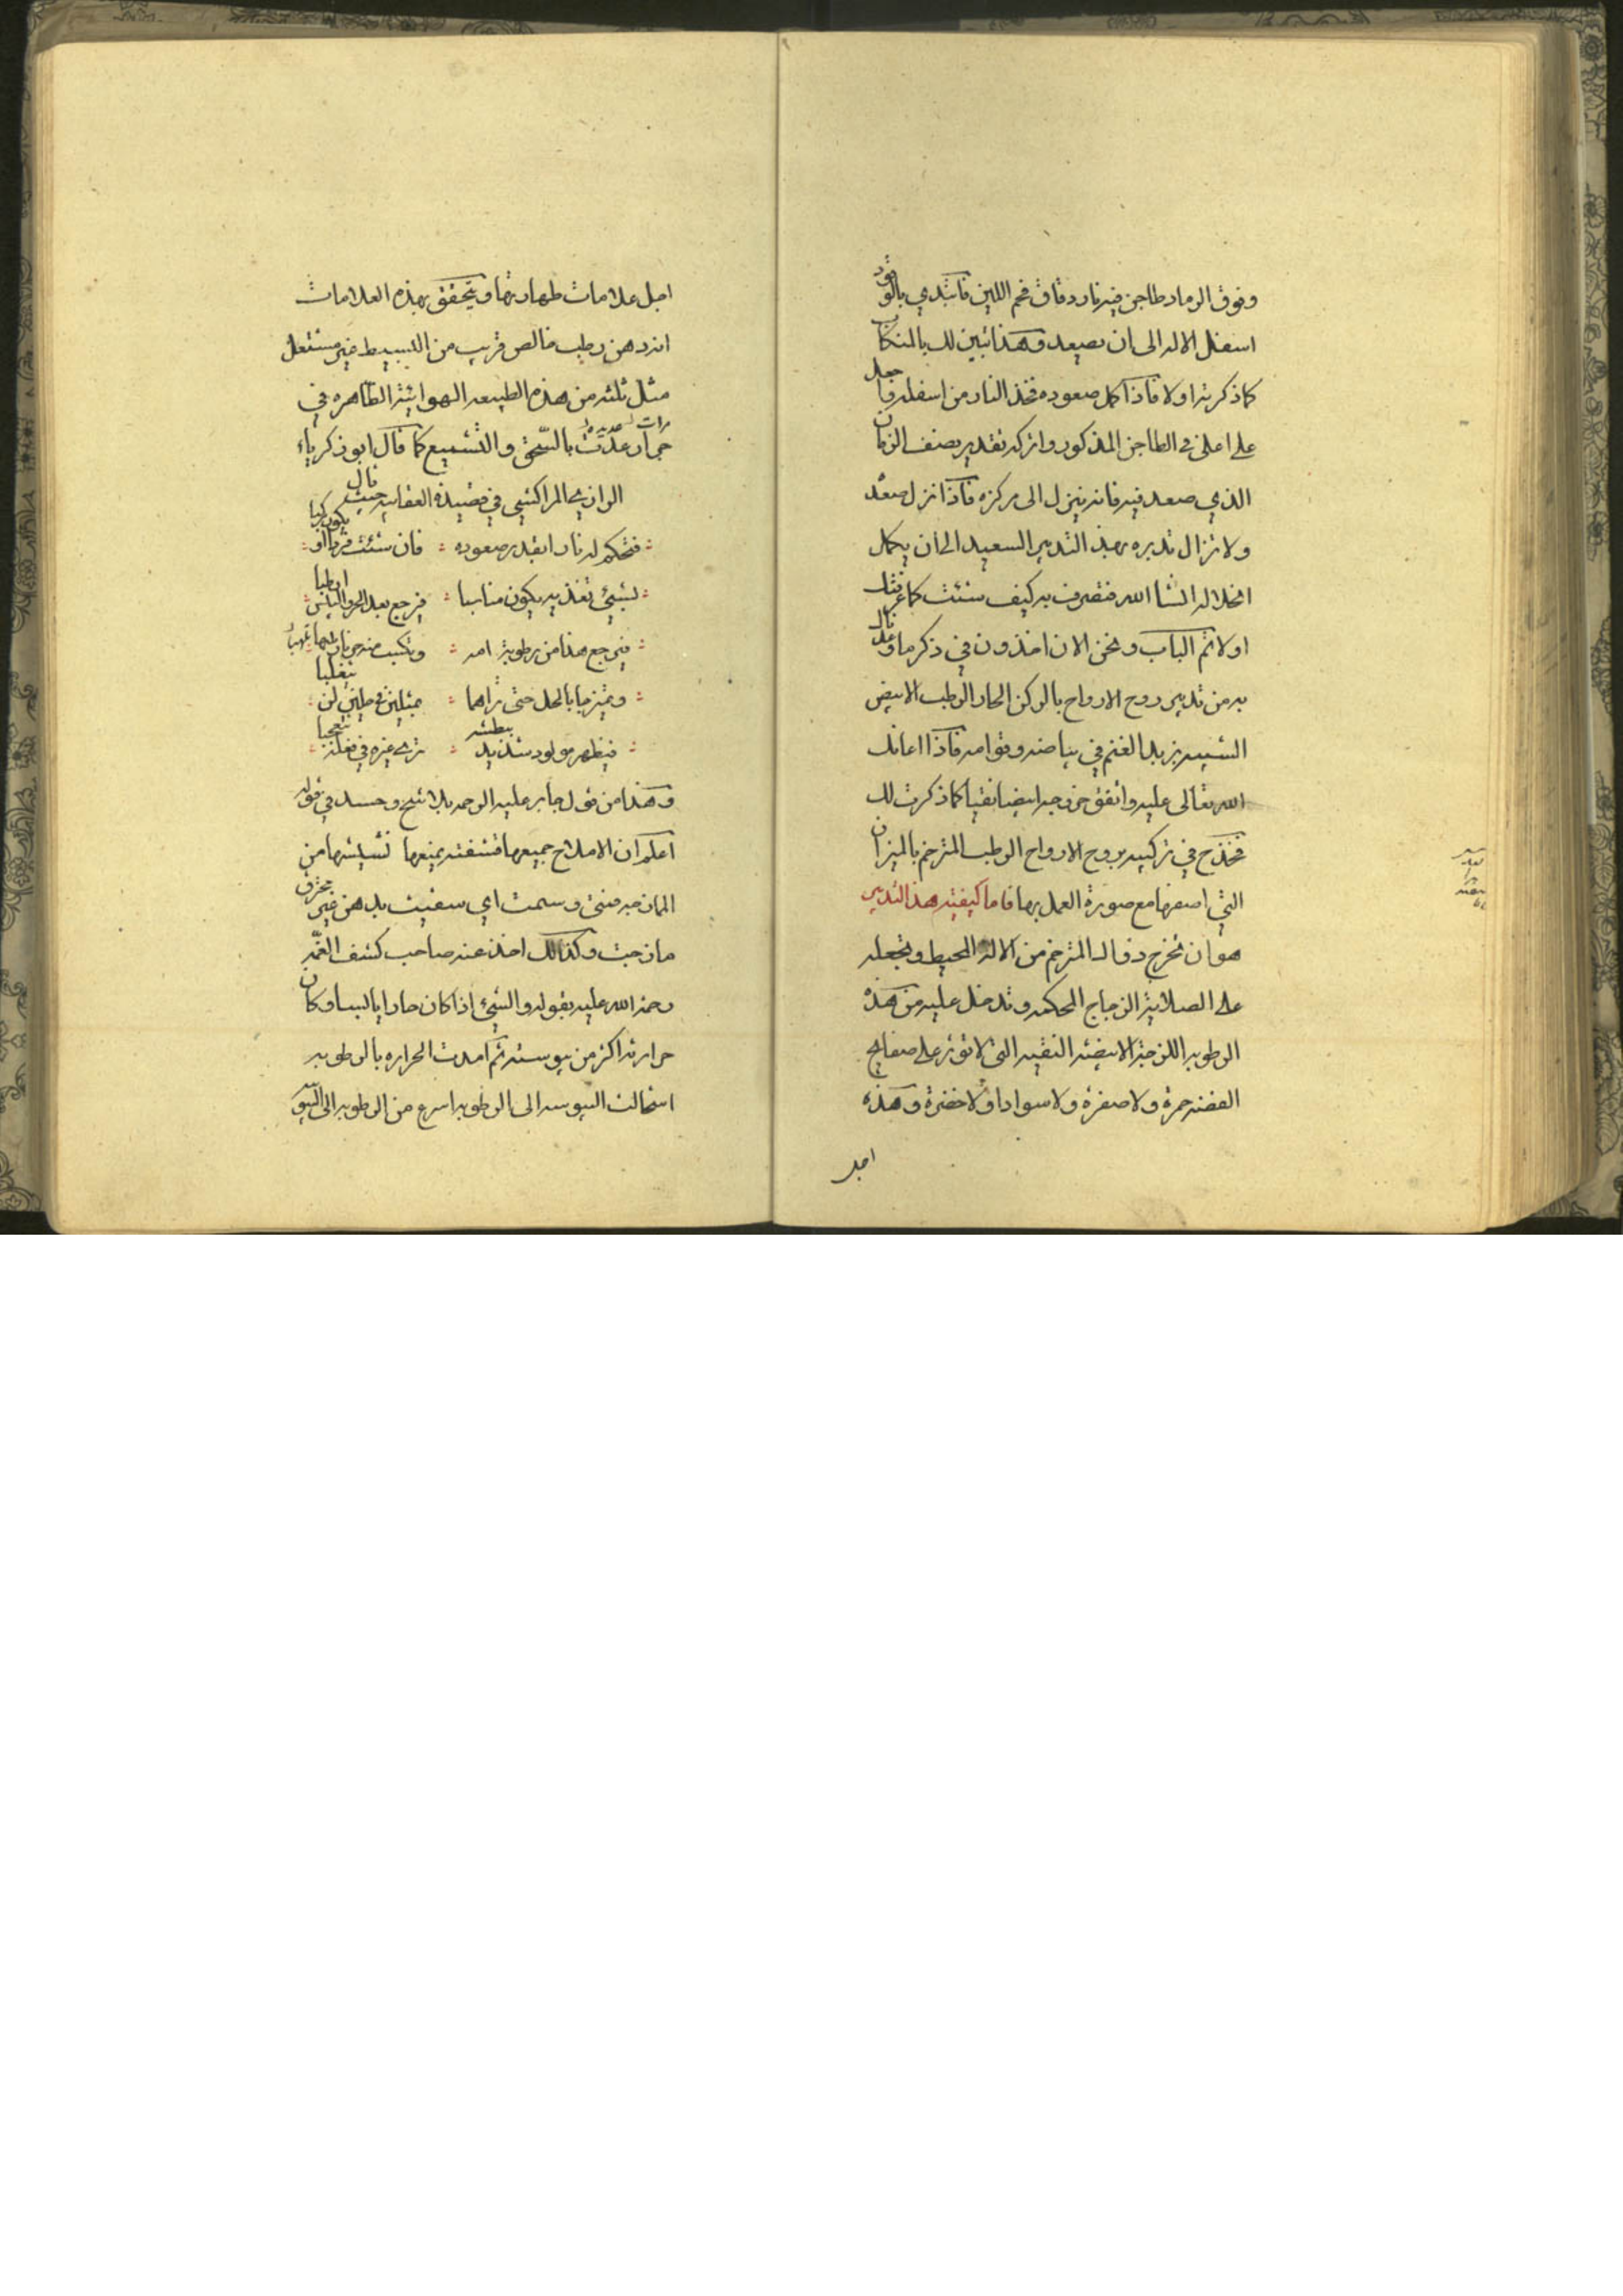 وفوق الرماد طاجن فيه نار دقاق فحم اللين فابتدي بالوقود
اسفل الاله الى ان يصعد وهذا تبين لك بالمنكاب
كما ذكرته اولا فاذا كمل صعوده فخذ النار من اسفله فاجعل
على اعلى في الطاجن المذكور واتركه تقدير نصف الزمان
الذي صعد فيه فانه ينزل الى مركزه فاذا نزل صعّد
ولا تزال تدبره بهذ التدبير السعيد الى ان يكمل
انحلاله انشا الله فتصرف به كيف شئت كما عرفتك
اولا تم الباب ونحن الان اخذون في ذكر ما وعد
به من تدبير روح الارواح بالركن الحار الرطب الابيض
الشبيه بزبد الغنم في بياضه وقوامه فاذا اعانك
الله تعالى عليه واتفق خروجه ابيضا نقيا كما ذكرت لك
فخذ في تركيبه بروح الارواح الرطب المترخم بالميزان
التي اصفها مع صورة العمل بها فاما كيفية هذ التدبير
هو ان تخرج المترخم من الاله المحيط وتجعله
على الصلاية الزجاج المحكمه وتدخل عليه من هذه
الرطوبه اللزجة الابيضة النقيه التي لا توثر على صفايح
الفضه حمرة ولا صفرة ولا سوادا ولا خضرة وهذه
اجل
اجل علامات طهارتها ويتحقق بهذه العلامات
انه دهن رطب خالص قريب من البسيط غير مشتعل
مثل ثلثه من هذه الطبيعه الهوائية الظاهره في
مرات عديدة بالسحق والتشميع كما قال ابو زكرياء
الرازي المراكشي في قصيدة حيث قال
فتحكم له نارا بقدر صعوده فان شئت
بشيئ تغذيه يكون مناسبا فيرجع بعد الحر واليبس ارطبا
فيرجع هذا من رطوبة امه وتكسب منه حر نار
ويمتزجا بالحل حتى تراهما لن يتغلبا
فيظهر مولود شديد ببطشه ترى في فعله تعجبا
وهذا من قول جابر عليه الرحمه بلا شح وحسد في قوله
اعلم ان الاملاح جميعها قشفته يمنعها تشبثها من
اي سقيت بدهن غير محترق
مازجت وكذالك اخذ عنه صاحب كشف الغمّه
رحمة الله عليه بقوله والشيئ اذا كان حارا يابسا وكان
حرارته اكثر من يبوسته ثم امدت الحراره بالرطوبه
استحالت اليبوسه الى الرطوبه اسرع من الرطوبه الى اليبو